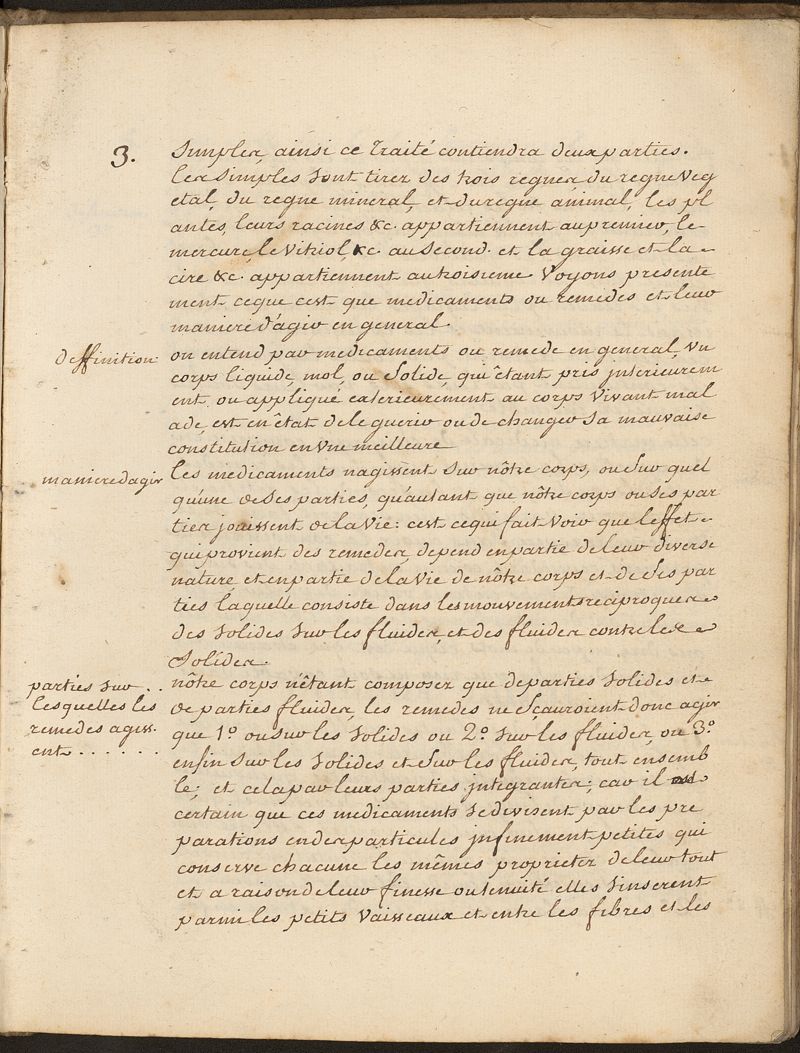 3. Simples, ainsi ce Traité contiendra deux parties.
les simples sont tirez des trois regnes du regne veg
etal, du regne mineral, et du regne animal, les pl
antes, leurs racines &c. appartiennent au premier, le
mercure, le vitriol, &c. au second. et la graisse et la
cire &c. appartiennent au troisieme voyons presente
ment ceque c'est que medicaments ou remedes et leur
maniere d'agir en general.
deffinition on entend par medicaments ou remede en general, un
corps liquide, mol, ou solide, qui êtant pris interieurem
ent ou appliqué exterieurement au corps vivant mal
ade, est en êtat de le guerir ou de changer sa mauvaise
constitution en une meilleure
maniere d'agir les medicaments n'agissent sur nôtre corps, ou sur quel
qu'une de ses parties, qu'autant que nôtre corps ou ses par
ties jouissent de la vie: c'est cequi fait voir que l'effet
qui provient des remedes, depend en partie de leur diverse
nature et en partie de la vie de nôtre corps et de ses par
ties laquelle consiste dans les mouvements reciproques
des solides sur les fluides, et des fluides contre les
solides.
parties sur .. nôtre corps n'êtant composez que de parties solides et
lesquelles les de parties fluides, les remedes ne sçauroient donc agir
remedes agiss. que 1º ou sur les solides ou 2º sur les fluides, ou 3º
ent ...... enfin sur les solides et sur les fluides, tout ensemb
le; et cela par leurs parties integrantes; car il
certain que ces medicaments se divisent par les pre
parations en des particules infinement petites qui
conserve chacune les mêmes proprietez de leur tout
et a raison de leur finesse ou tenuité elles s'inserent
parmi les petits vaisseaux et entre les fibres et les